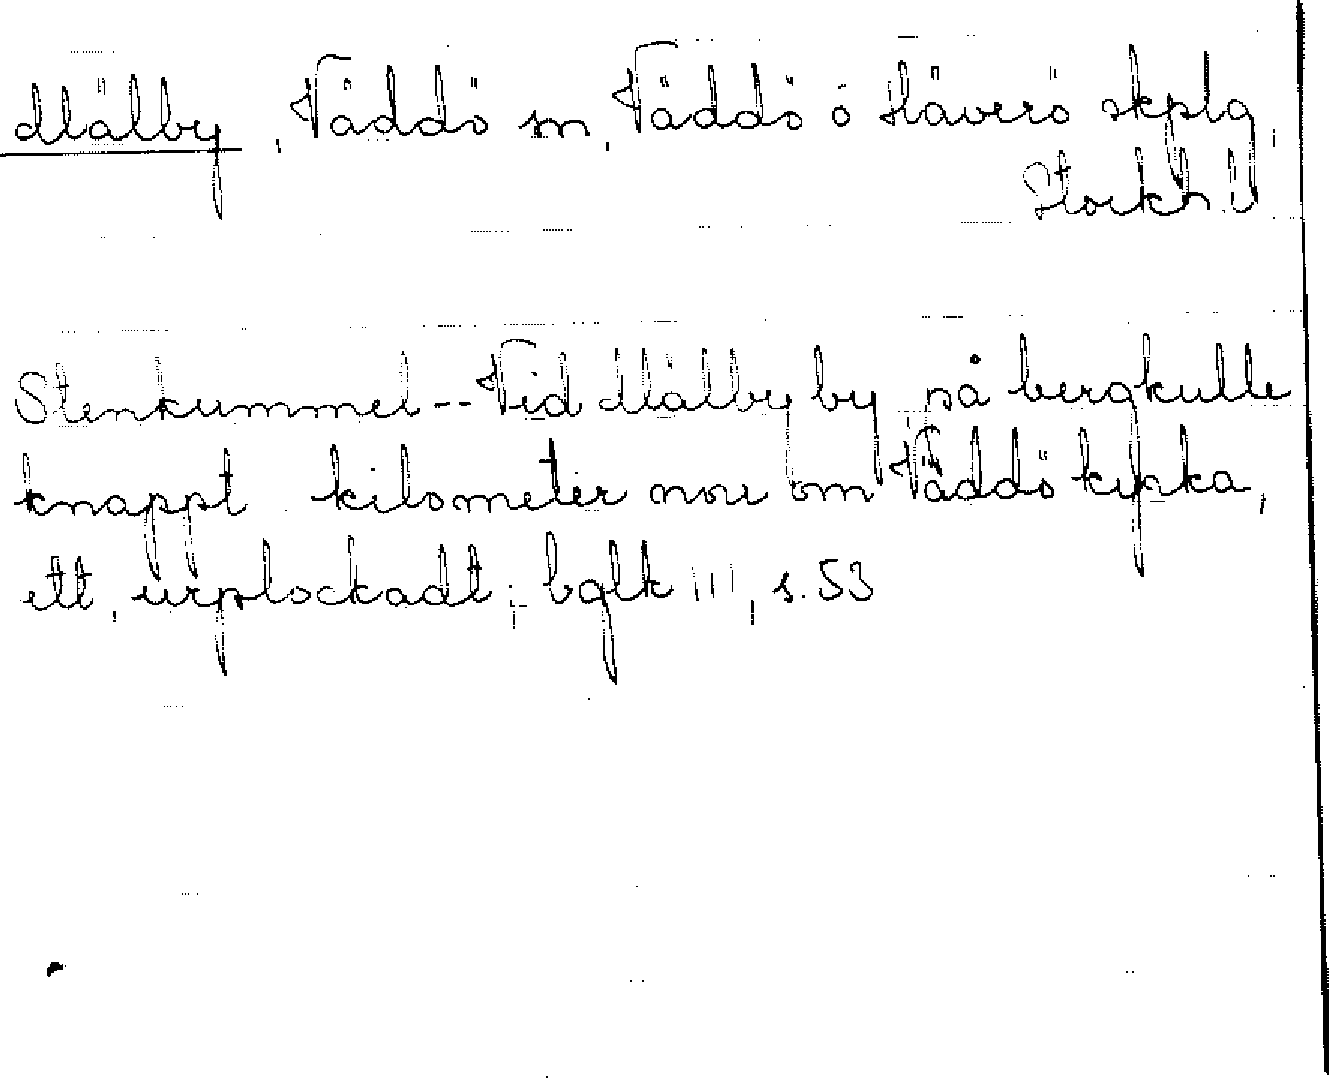 Mälby, Väddö sn, Väddö o Häverö skplg,
Stockh. l
Stenkummel -- Vid Mälby by på bergkulle
knappt kilometer norr om Väddö kyrka,
ett, urplockadt; bglk III, s. 53